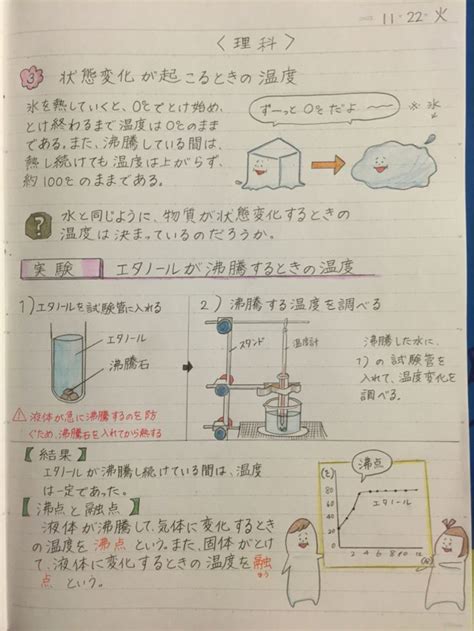 11・22・火
〈理科〉
③ 状態変化が起こるときの温度
氷を熱していくと、0℃でとけ始め、
とけ終わるまで温度は0℃のまま
である。また、沸騰している間は、
熱し続けても温度は上がらず、
約100℃のままである。
ずーっと0℃だよ〜〜
※氷
? 水と同じように、物質が状態変化するときの
温度は決まっているのだろうか。
実験 エタノールが沸騰するときの温度
1)エタノールを試験管に入れる
エタノール
沸騰石
⚠液体が急に沸騰するのを防
ぐため、沸騰石を入れてから熱する
2)沸騰する温度を調べる
スタンド
温度計
沸騰した水に、
1)の試験管を
入れて、温度変化を
調べる。
【結果】
エタノールが沸騰し続けている間は、温度
は一定であった。
【沸点と融点】
液体が沸騰して、気体に変化するとき
の温度を沸点という。また、固体がとけ
て、液体に変化するときの温度を融
点という。
沸点
(℃)
80
70
60
50
40
30
20
10
0
エタノール
2 4 6 8 10 12